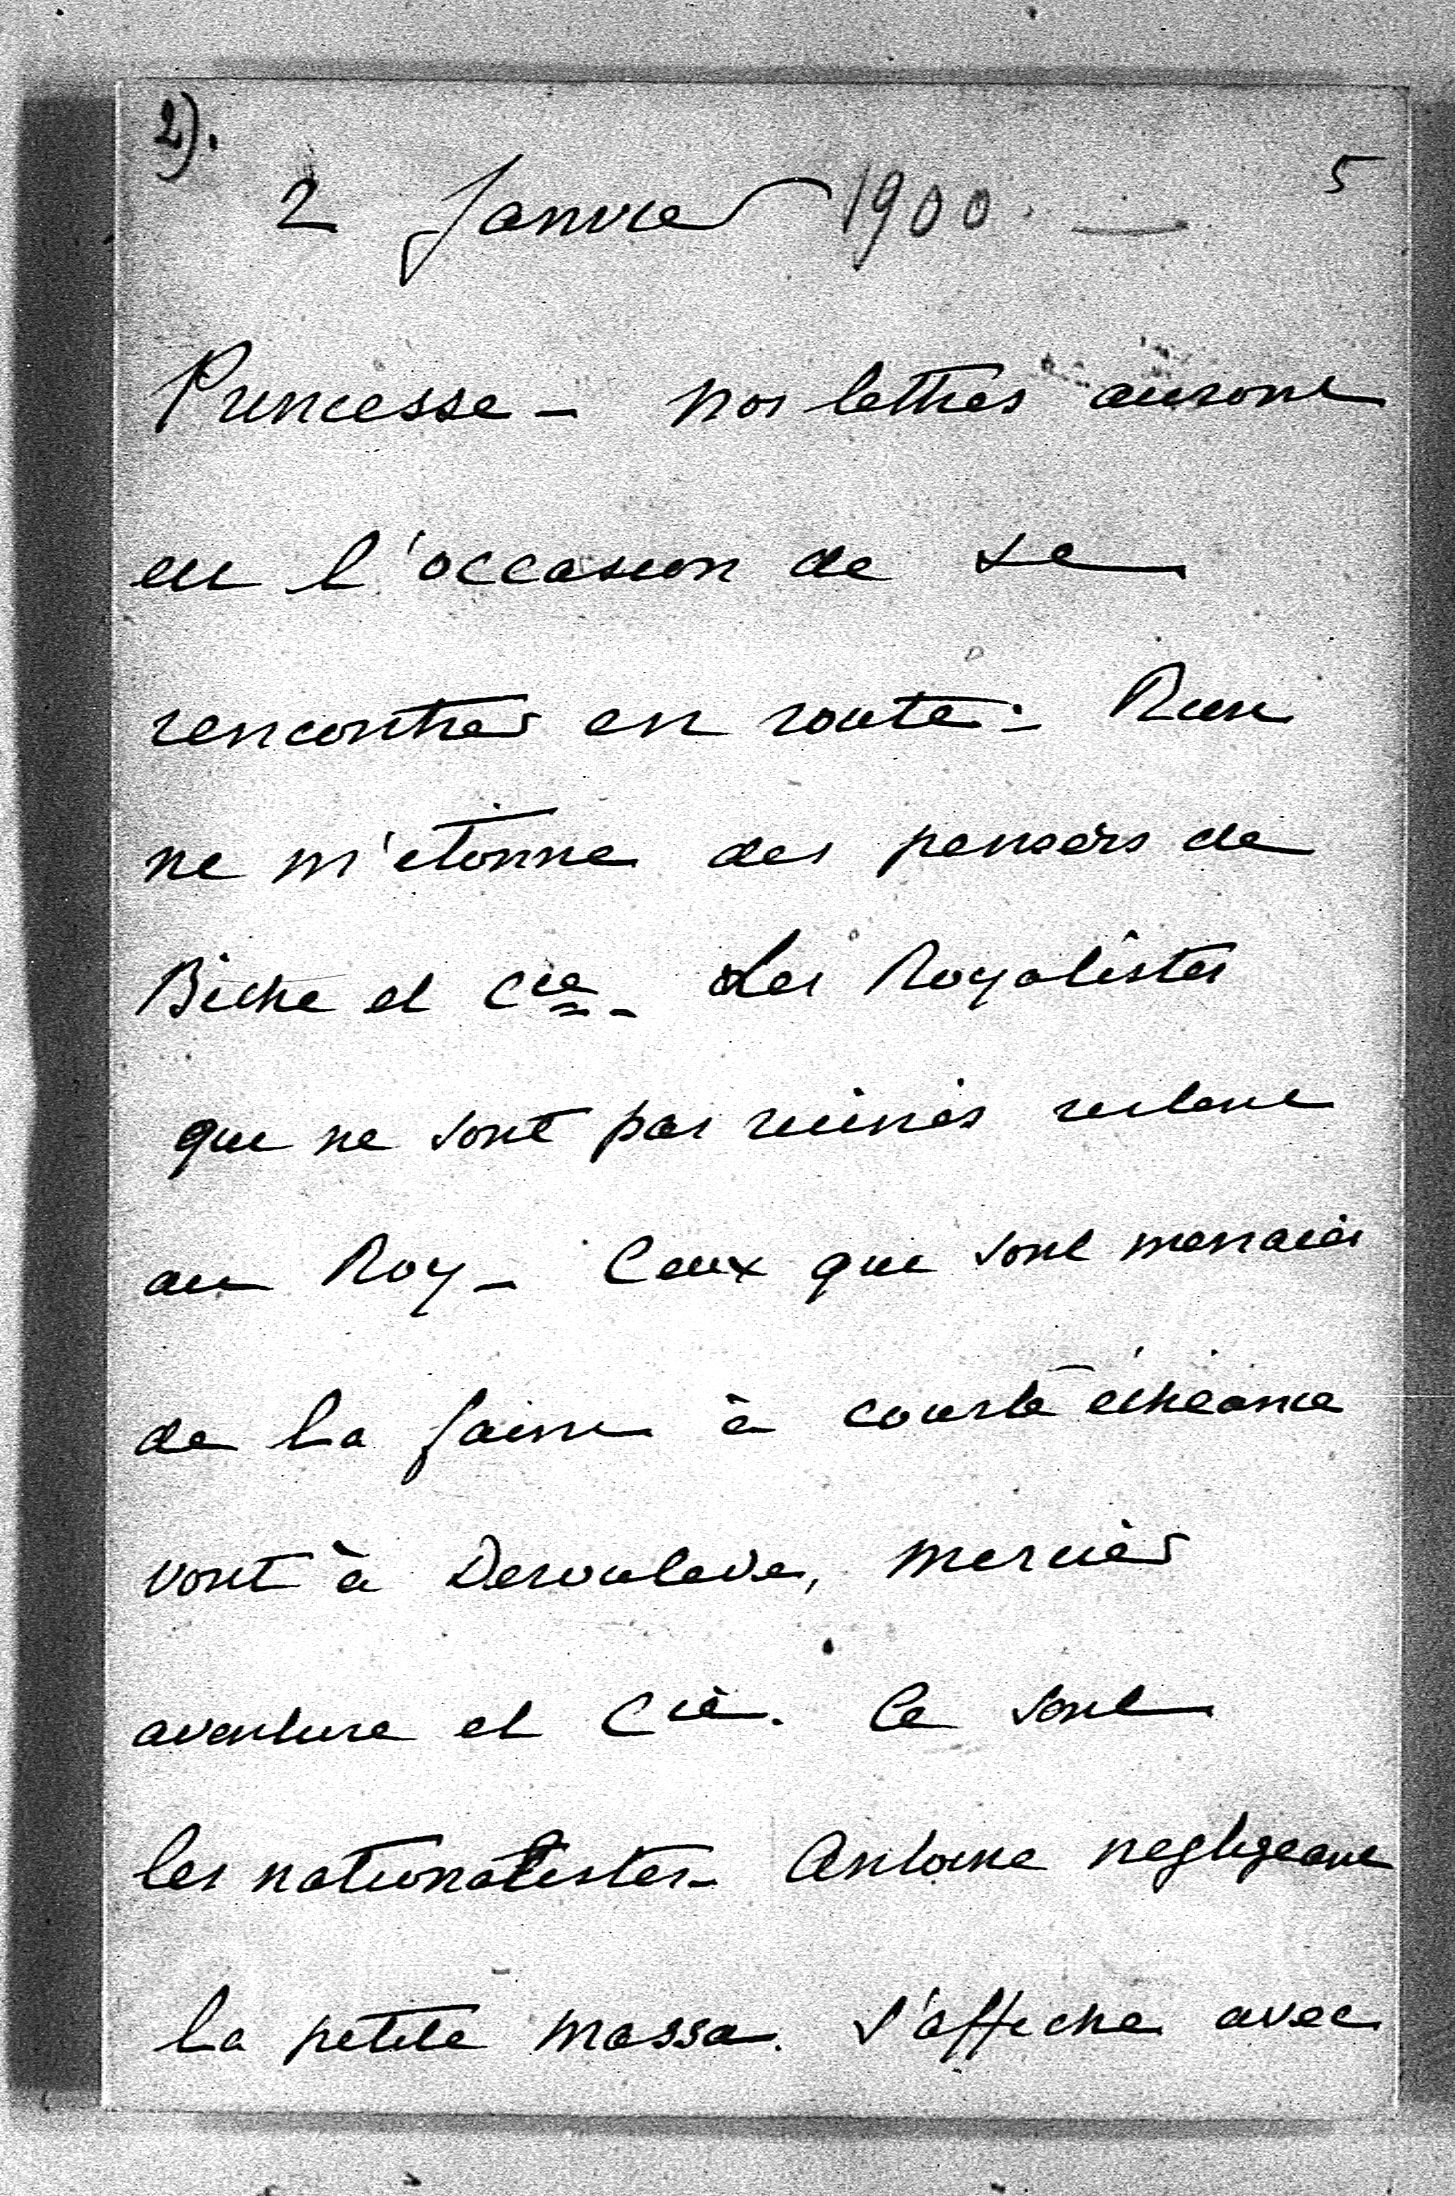 2).
2 Janvier 1900. — 5
Princesse - nos lettres auront
eu l'occasion de se
rencontrer en route. Rien
ne m'etonne des pensers de
Biche et Cie - Les Royalistes
qui ne sont pas ruinés restent
au Roy - Ceux qui sont menacés
de la faim à courte échéance
vont à Deroulede, mercier
aventure et Cie. Ce sont
les nationalistes - Antoine negligeant
la petite massa. s'affiche avec